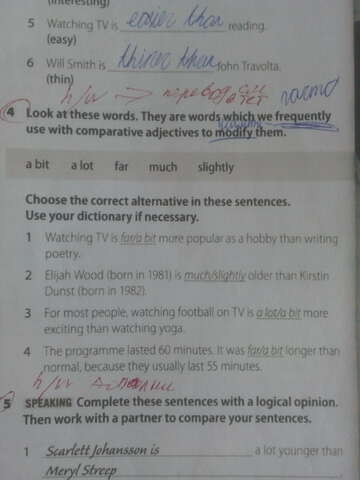 (interesting)
5 Watching TV is easier than reading.
(easy)
6 Will Smith is thiner than John Travolta.
(thin)
h/w →
4 Look at these words. They are words which we frequently
use with comparative adjectives to modify them.
a bit a lot far much slightly
Choose the correct alternative in these sentences.
Use your dictionary if necessary.
1 Watching TV is far/a bit more popular as a hobby than writing
poetry.
2 Elijah Wood (born in 1981) is much/slightly older than Kirstin
Dunst (born in 1982).
3 For most people, watching football on TV is a lot/a bit more
exciting than watching yoga.
4 The programme lasted 60 minutes. It was far/a bit longer than
normal, because they usually last 55 minutes.
h/w
5 SPEAKING Complete these sentences with a logical opinion.
Then work with a partner to compare your sentences.
1 Scarlett Johansson is a lot younger than
Meryl Streep